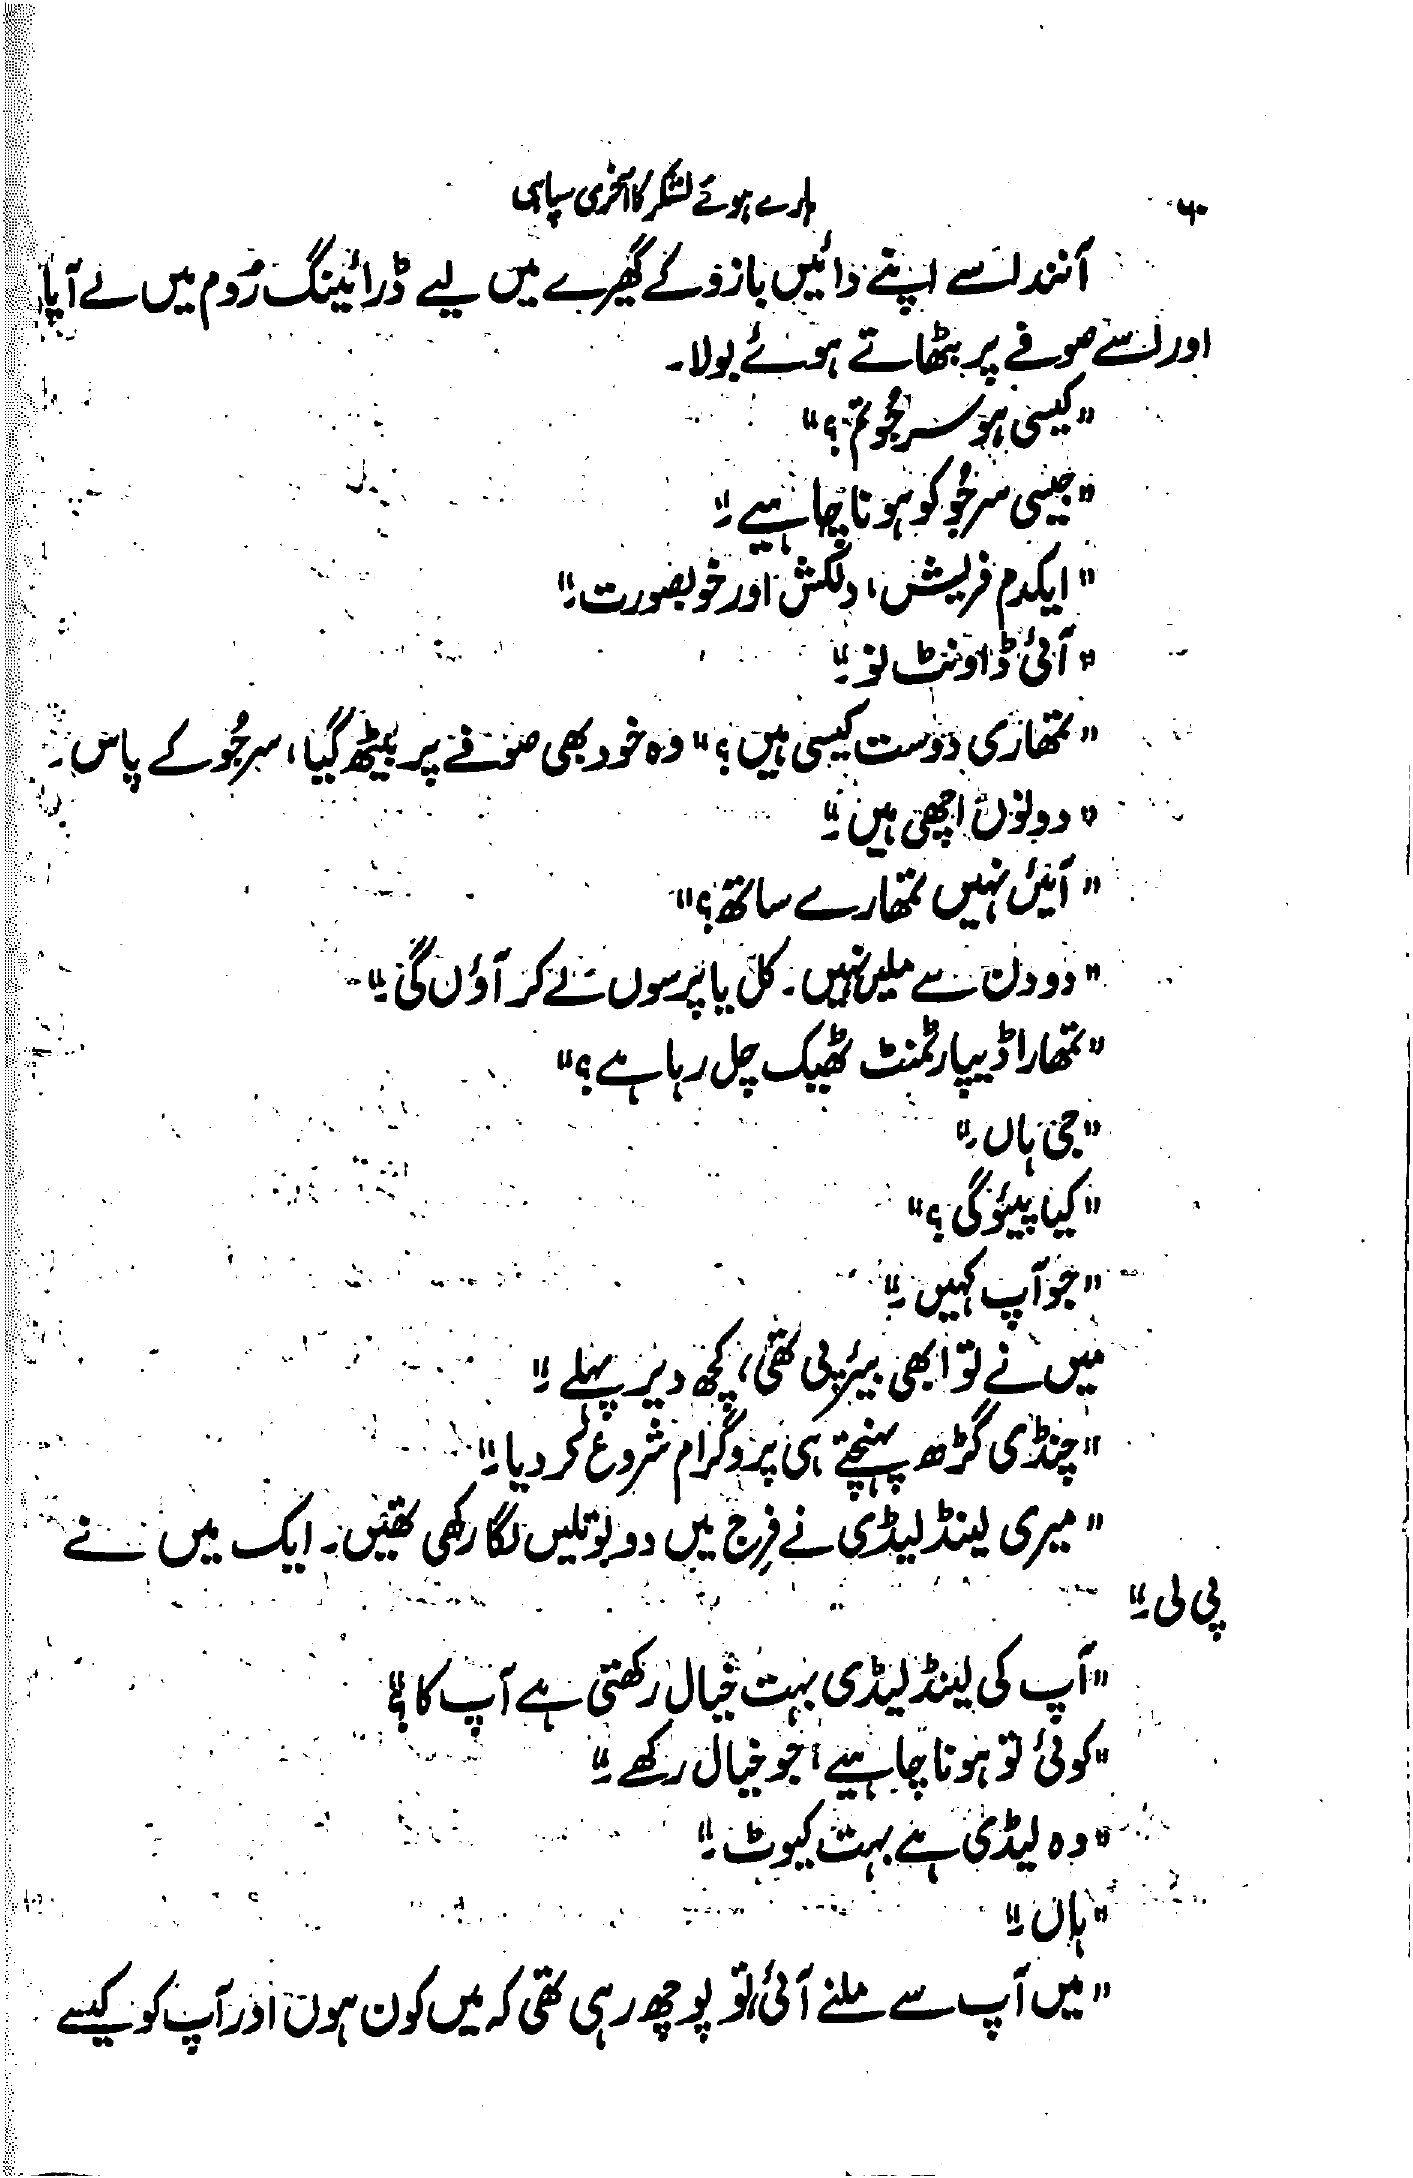 ۶۰
ہارے ہوئے لشکر کا آخری سپاہی
آنند اسے اپنے دائیں بازو کے گھیرے میں لیے ڈرائینگ رُوم میں لے آیا،
اور اسے صوفے پر بٹھاتے ہوئے بولا۔
”کیسی ہو سرجُو تم؟“
”جیسی سرجُو کو ہونا چاہیے۔“
”ایکدم فریش، دلکش اور خوبصورت۔“
”آئی ڈاونٹ نو۔“
”تمھاری دوست کیسی ہیں؟“ وہ خود بھی صوفے پر بیٹھ گیا، سرجُو کے پاس۔
”دونوں اچھی ہیں۔“
”آئیں نہیں تمھارے ساتھ؟“
”دو دن سے ملیں نہیں۔ کل یا پرسوں لے کر آؤں گی۔“
”تمھارا ڈیپارٹمنٹ ٹھیک چل رہا ہے؟“
”جی ہاں۔“
”کیا پیئوگی؟“
”جو آپ کہیں۔“
میں نے تو ابھی بیئر پی تھی، کچھ دیر پہلے۔“
”چنڈی گڑھ پہنچتے ہی پروگرام شروع کر دیا۔“
”میری لینڈ لیڈی نے فرِج میں دو بوتلیں لگا رکھی تھیں۔ ایک میں نے
پی لی۔“
”آپ کی لینڈ لیڈی بہت خیال رکھتی ہے آپ کا؟“
”کوئی تو ہونا چاہیے، جو خیال رکھے۔“
”وہ لیڈی ہے بہت کیوٹ۔“
”ہاں۔“
”میں آپ سے ملنے آئی، تو پوچھ رہی تھی کہ میں کون ہوں اور آپ کو کیسے